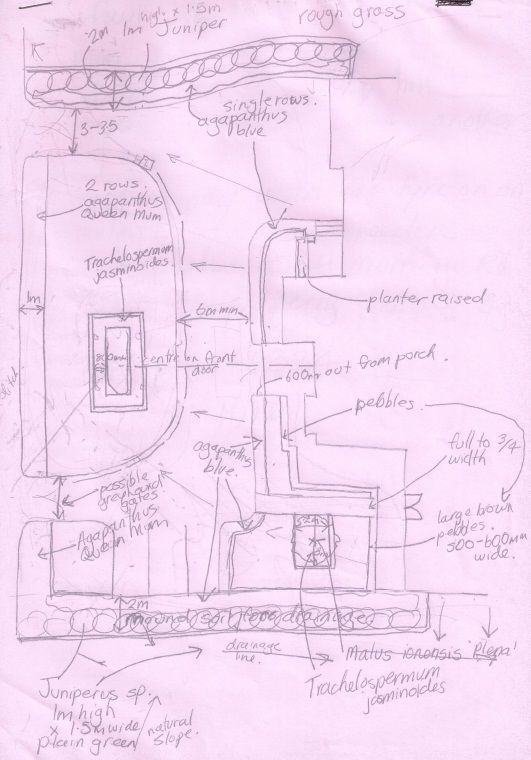 high x 1.5m
~2m 1m Juniper
rough grass
single rows.
agapanthus
blue
3-3.5
2 rows.
agapanthus
Queen Mum
Trachelospermum
jasminoides
planter raised
1m
6m min
800mm
centre on front
door
600mm out from porch.
pebbles.
ditch
agapanthus
blue.
full to 3/4
width
possible
greyhound
gates
Agapanthus
Queen Mum
large brown
pebbles.
500-600mm
wide.
2m
2m
mound soil for drainage
drainage
line.
Malus ionensis 'plena'
Trachelospermum
jasminoides
Juniperus sp.
1m high
x 1.5m wide
plain green
natural
slope.